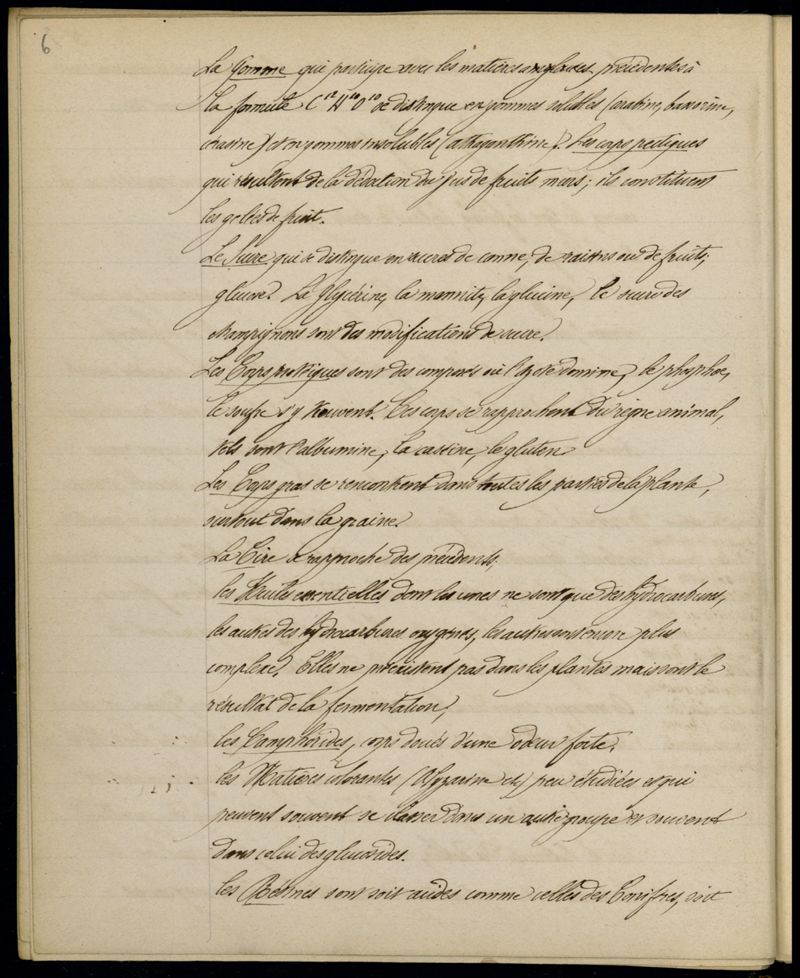 6
La Gomme qui participe avec les matières amylacées précédentes à
la formule C¹²H¹⁰O¹⁰ se distingue en gommes solubles (arabine, bassorine,
cérasine) et en gommes insolubles (adragantine). Les corps pectiques
qui résultent de la décoction du jus de fruits murs; ils constituent
les gelées de fruit.
Le Sucre qui se distingue en sucres de canne, de raisins ou de fruits,
glucose. La Glycérine, la mannite, la glucine, le sucre des
champignons sont des modifications de sucre.
Les Corps protéiques sont des composés où l'azote domine, le phosphore,
le soufre s'y trouvent. Ces corps se rapprochent du règne animal,
tels sont l'albumine, la caséine, le gluten
Les Corps gras se rencontrent dans toutes les parties de la plante,
surtout dans la graine.
La Cire se rapproche des précédents.
les Huiles essentielles dont les unes ne sont que des hydrocarbures,
les autres des hydrocarbures oxygénés, les autres sont encore plus
complexe. Elles ne préexistent pas dans les plantes mais sont le
résultat de la fermentation,
les Camphorides, corps doués d'une odeur forte.
les Matières colorantes ( etc) peu étudiées et qui
peuvent souvent se classer dans un autre groupe et souvent
dans celui des glucosides.
les Résines sont soit acides comme celles des Conifères, soit